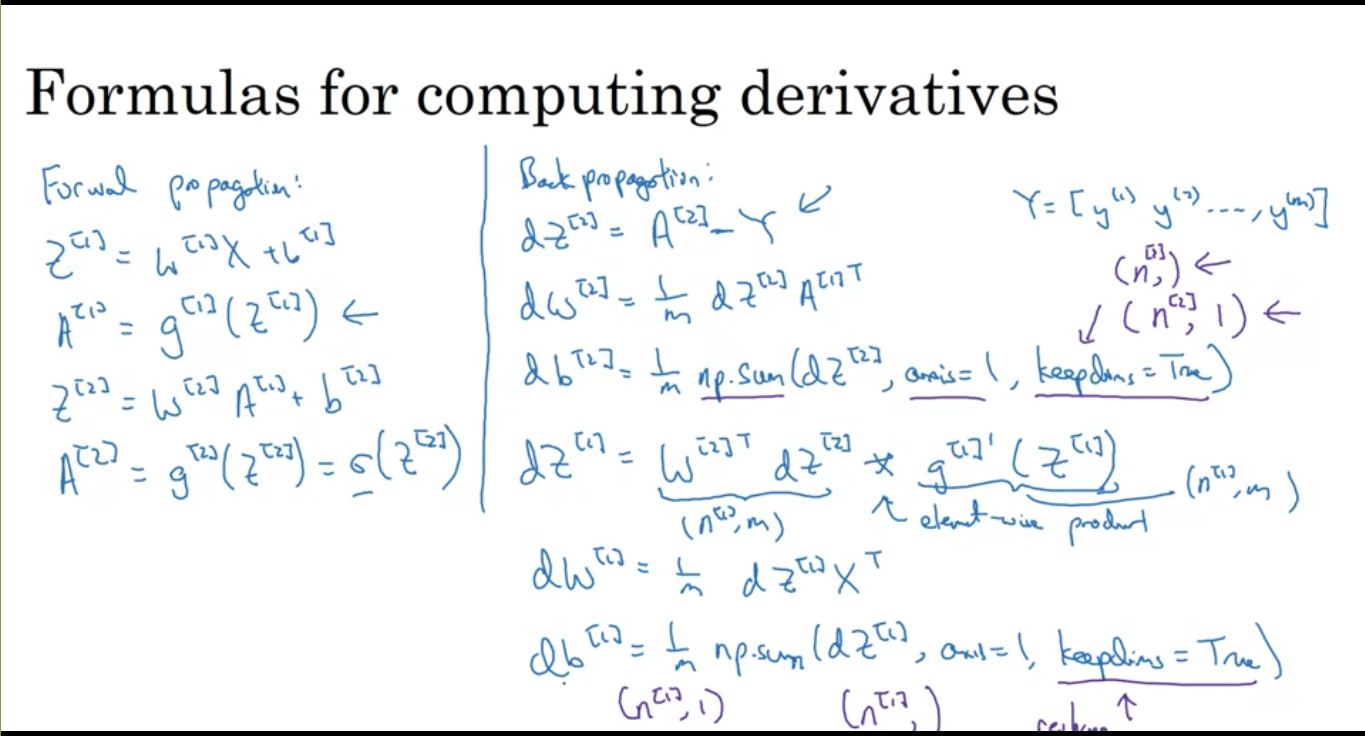 Formulas for computing derivatives
Forward propagation:
Z^[1] = W^[1]X + b^[1]
A^[1] = g^[1](Z^[1]) ←
Z^[2] = W^[2] A^[1] + b^[2]
A^[2] = g^[2](Z^[2]) = σ(Z^[2])
Back propagation:
dZ^[2] = A^[2] - Y ↙
dW^[2] = 1/m dZ^[2] A^[1]T
db^[2] = 1/m np.sum(dZ^[2], axis=1, keepdims=True)
dZ^[1] = W^[2]T dZ^[2] * g^[1]'(Z^[1])
(n^[1], m)
↖ element-wise product
(n^[1], m)
dW^[1] = 1/m dZ^[1] X^T
db^[1] = 1/m np.sum(dZ^[1], axis=1, keepdims=True)
(n^[1], 1) (n^[1],) ↑
Y = [y^(1) y^(2) ...., y^(m)]
(n^[2],) ←
↙ (n^[2], 1) ←